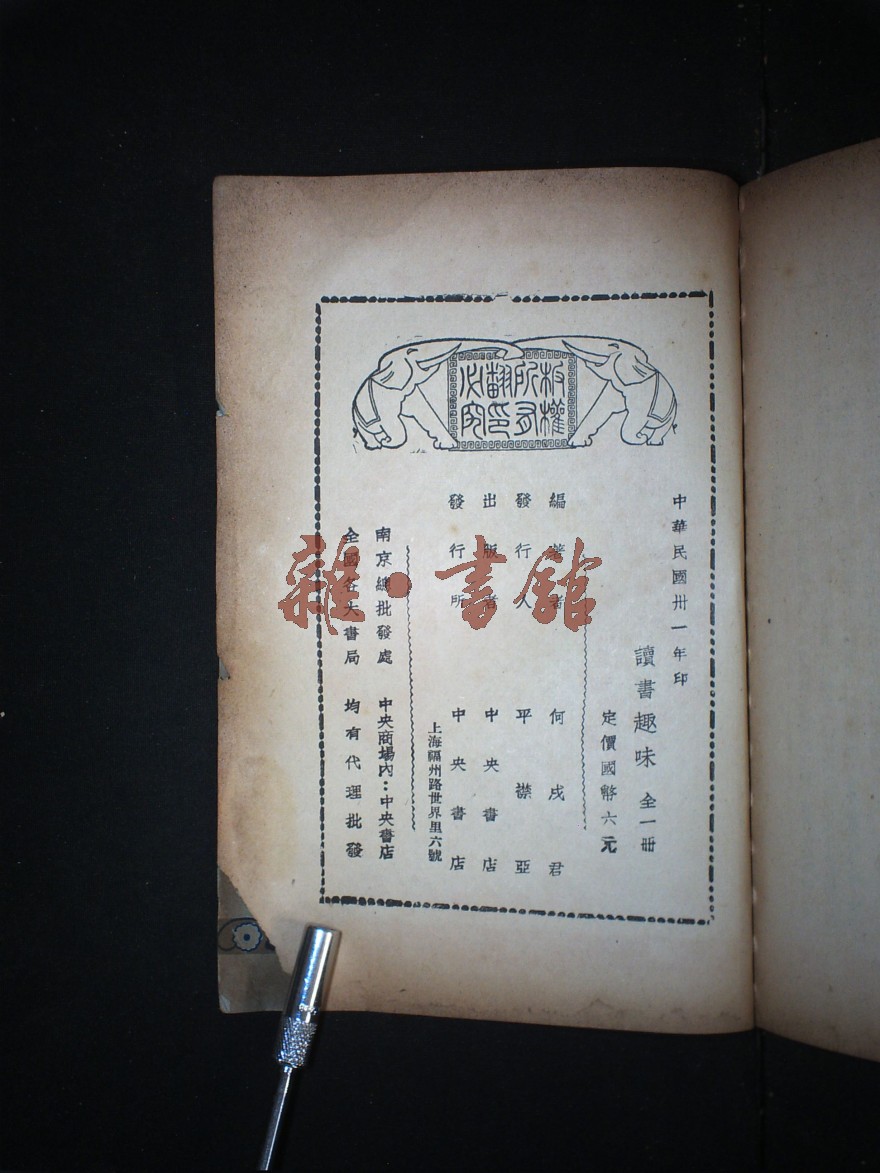 版權
所有
翻印
必究
中華民國卅一年印
讀書趣味 全一冊
定價國幣六元
編著者 何戍君
發行人 平襟亞
出版者 中央書店
發行所 中央書店
上海福州路世界里六號
南京總批發處 中央商場內：中央書店
全國各大書局 均有代理批發
雜·書館